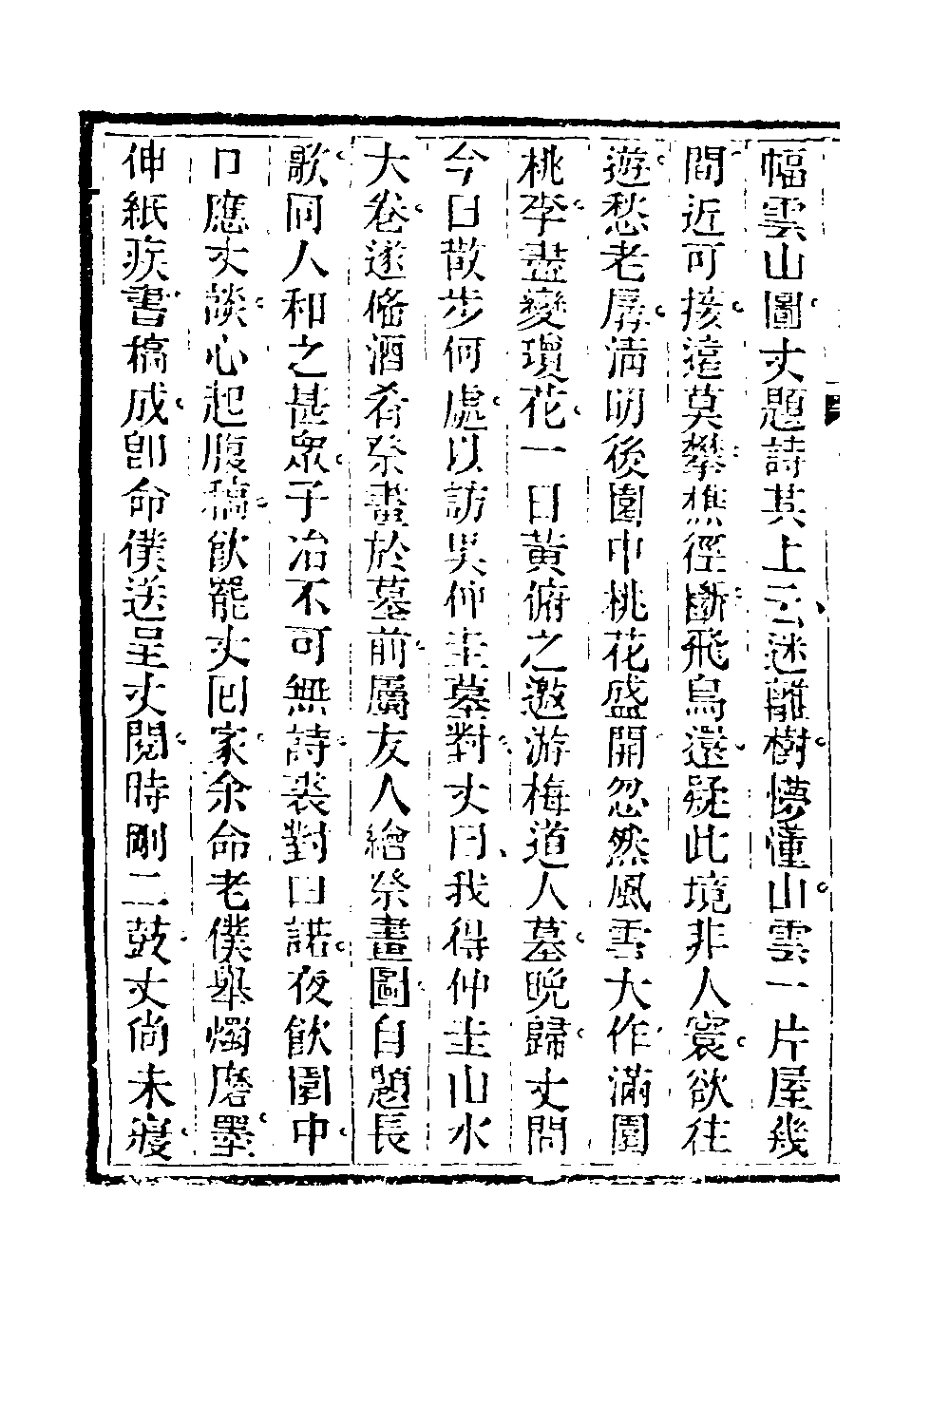 幅雲山圖丈題詩其上云迷離樹懜懂山雲一片屋幾
間近可接遠莫攀樵徑斷飛鳥還疑此境非人寰欲往
遊愁老孱淸明後園中桃花盛開忽然風雲大作滿園
桃李盡變瓊花一日黃俯之邀游梅道人墓晚歸丈問
今日散步何處以訪吳仲圭墓對丈曰我得仲圭山水
大卷遂偹酒肴祭畫於墓前屬友人繪祭畫圖自題長
歌同人和之甚衆子冶不可無詩裘對曰諾夜飮園中
口應丈談心起腹稿飮罷丈囘家余命老僕舉燭磨墨
伸紙疾書稿成卽命僕送呈丈閱時剛二鼓丈尙未寢